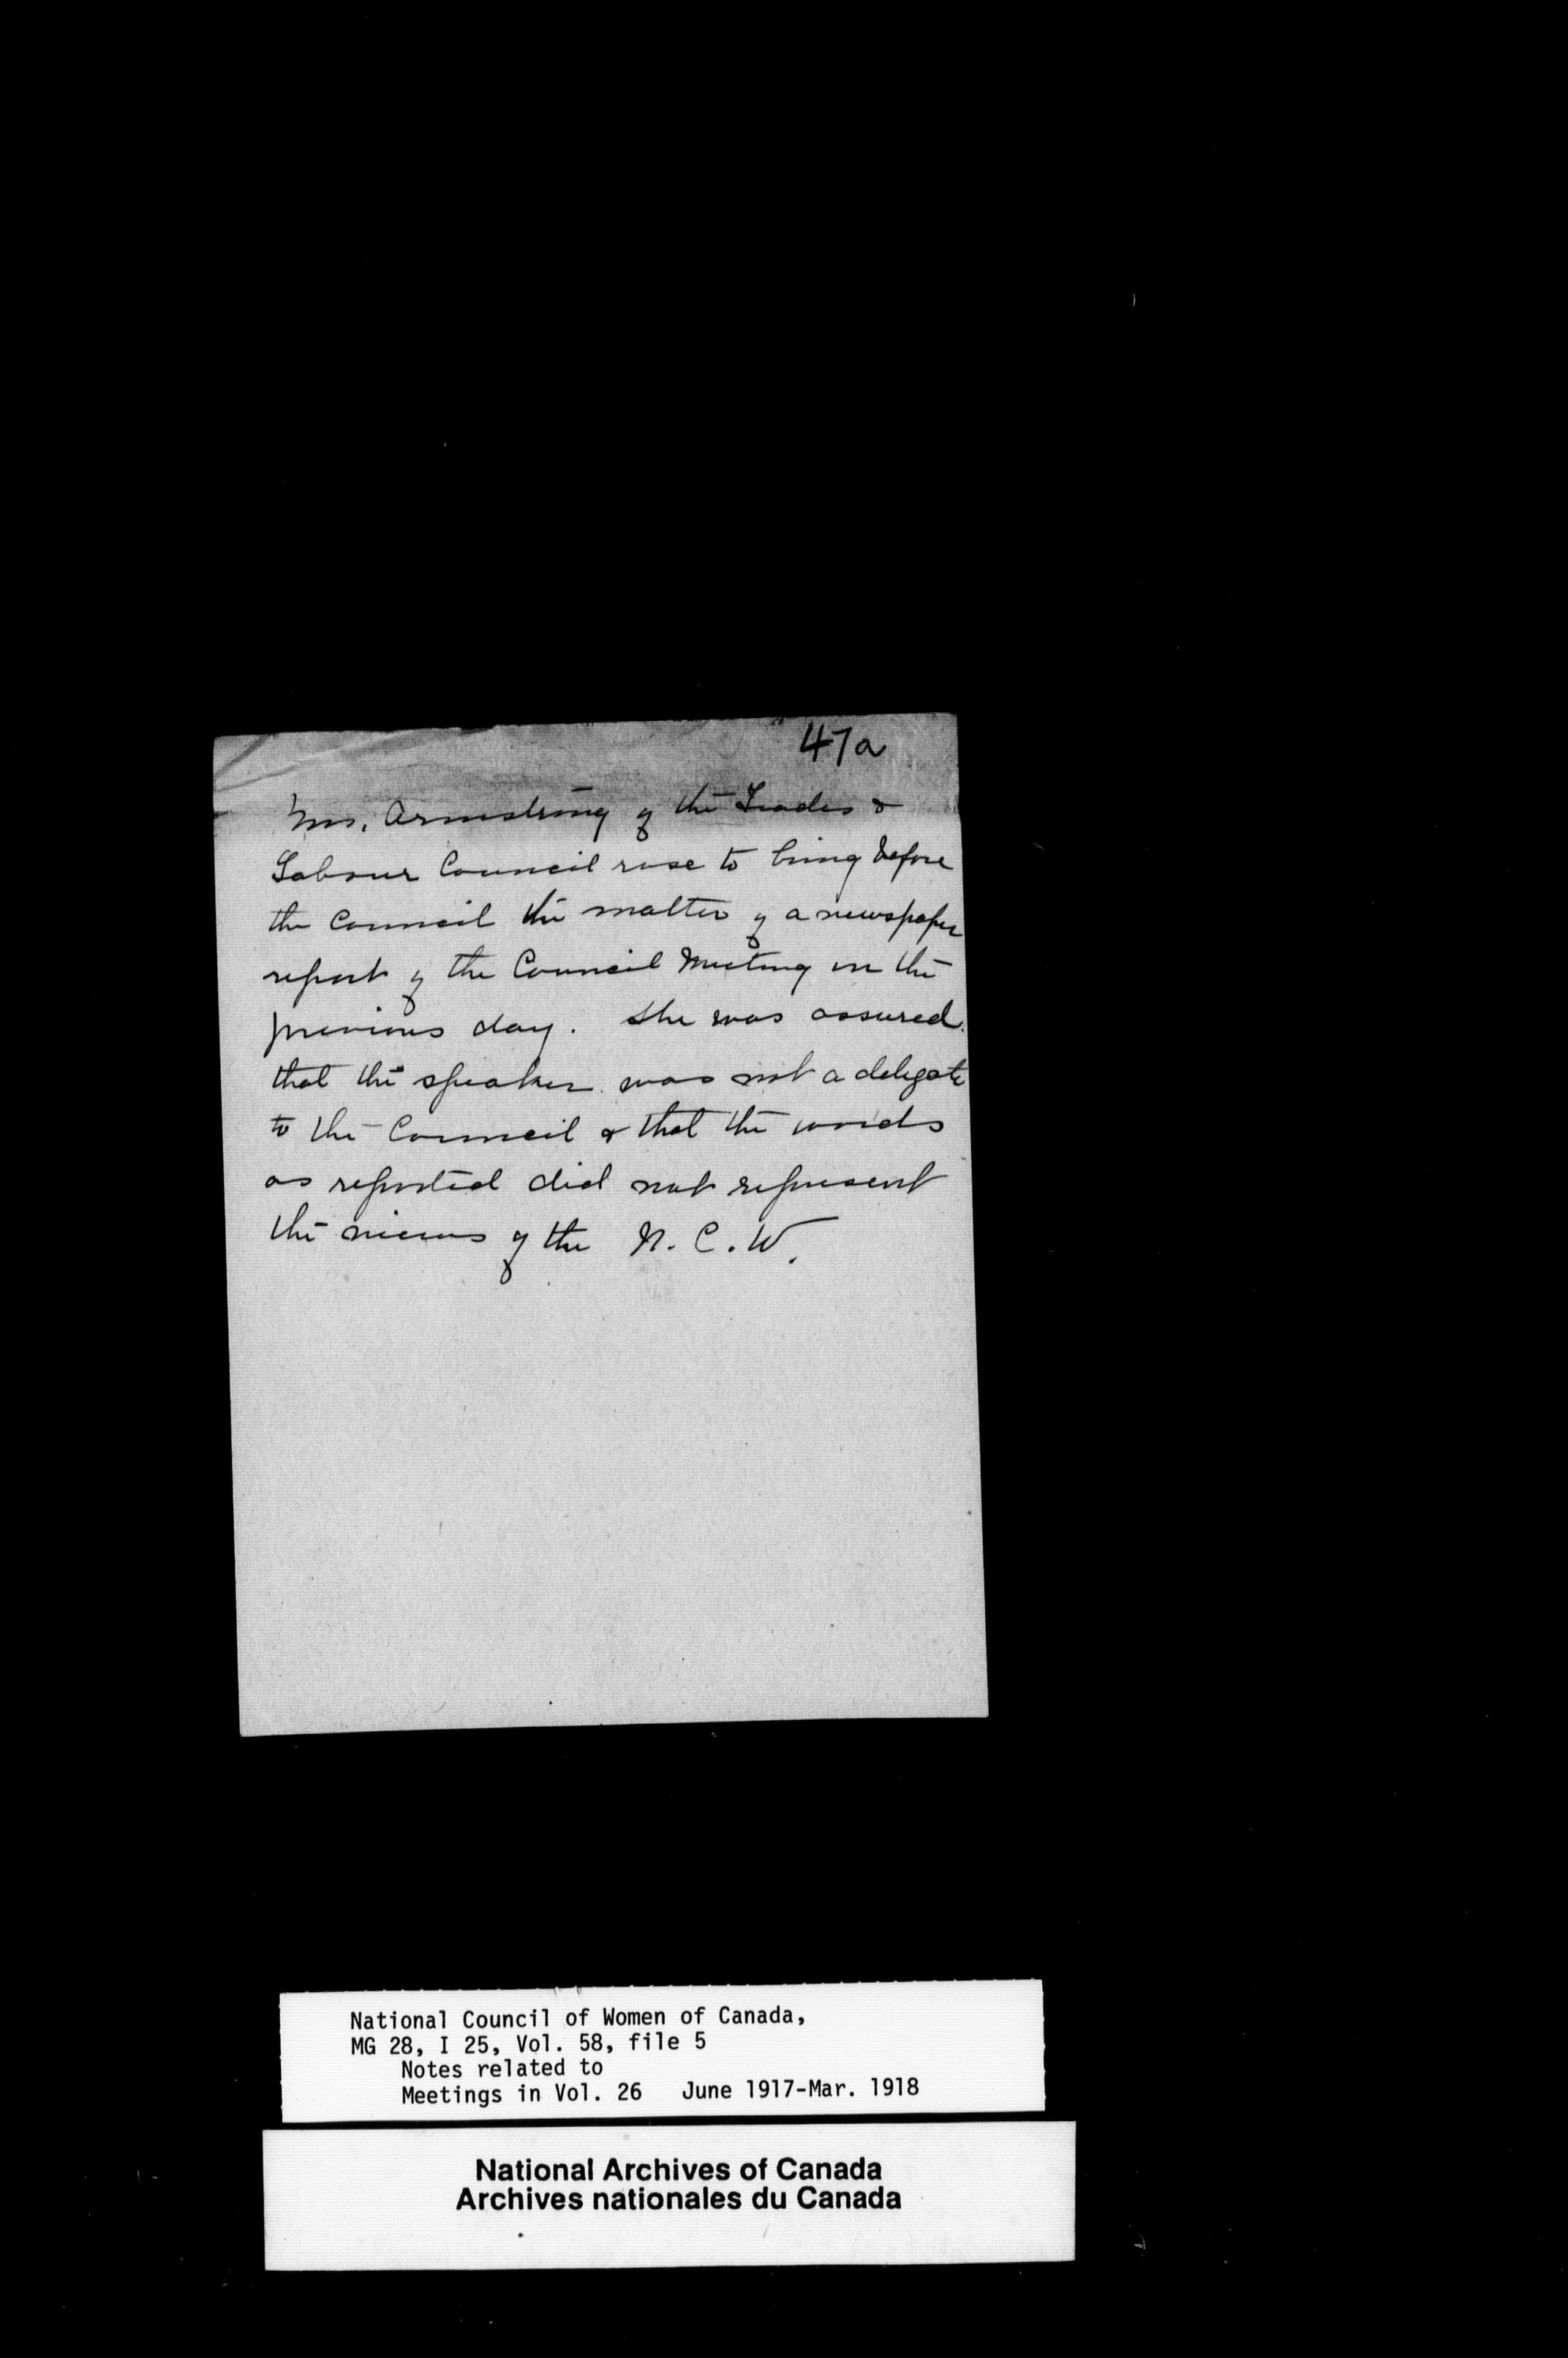 47a
Mrs. Armstrong of the Trades &
Labour Council rose to bring before
the Council the matter of a newspaper
report of the Council Meeting on the
previous day. She was assured
that the speaker was not a delegate
to the Council & that the words
as reported did not represent
the views of the N.C.W.
National Council of Women of Canada,
MG 28, I 25, Vol. 58, file 5
Notes related to
Meetings in Vol. 26 June 1917-Mar. 1918
National Archives of Canada
Archives nationales du Canada